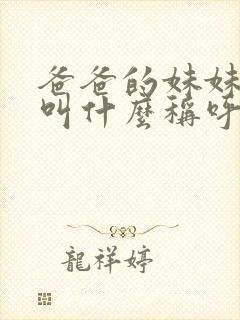 爸爸的妹妹
叫什麼稱呼
龍祥婷